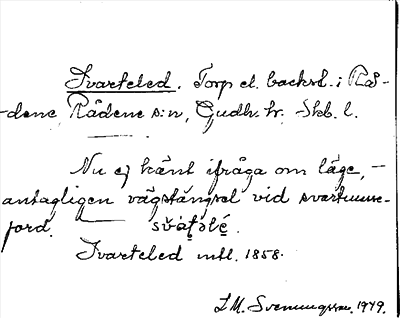 Svarteled. Torp el. backst. i Rå-
dene, Rådene s:n, Gudh. hr. Skb. l.
Nu ej känt ifråga om läge, -
antagligen vägstängsel vid svartmuse-
jord. svat̯əlé.
Svarteled mtl. 1858.
L.M. Svenungsson. 1949.